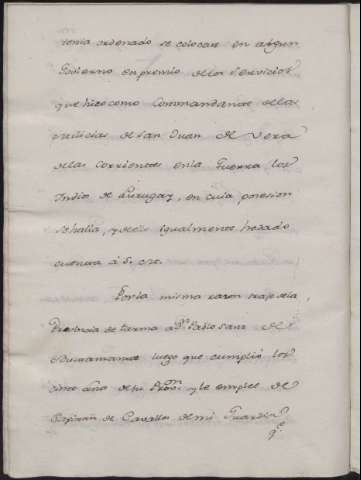 tenia ordenado se colocase en algun
Govierno en premio de los Servicios
que hizo como Commandante de la
milicias de San Juan de Vera
de las Corrientes en la Guerra los
Indios de Uruguay, en cuia posesion
se halla, y de igualmente hè dado
cuenta á S. M.
Por la misma razon traje de la
Provincia de tarma a Dn. Pablo Sanz de
Bustamante luego que cumplió los
cinco años de su y le emplee de
Capitan de Cavallos de mi Guardia
qe.